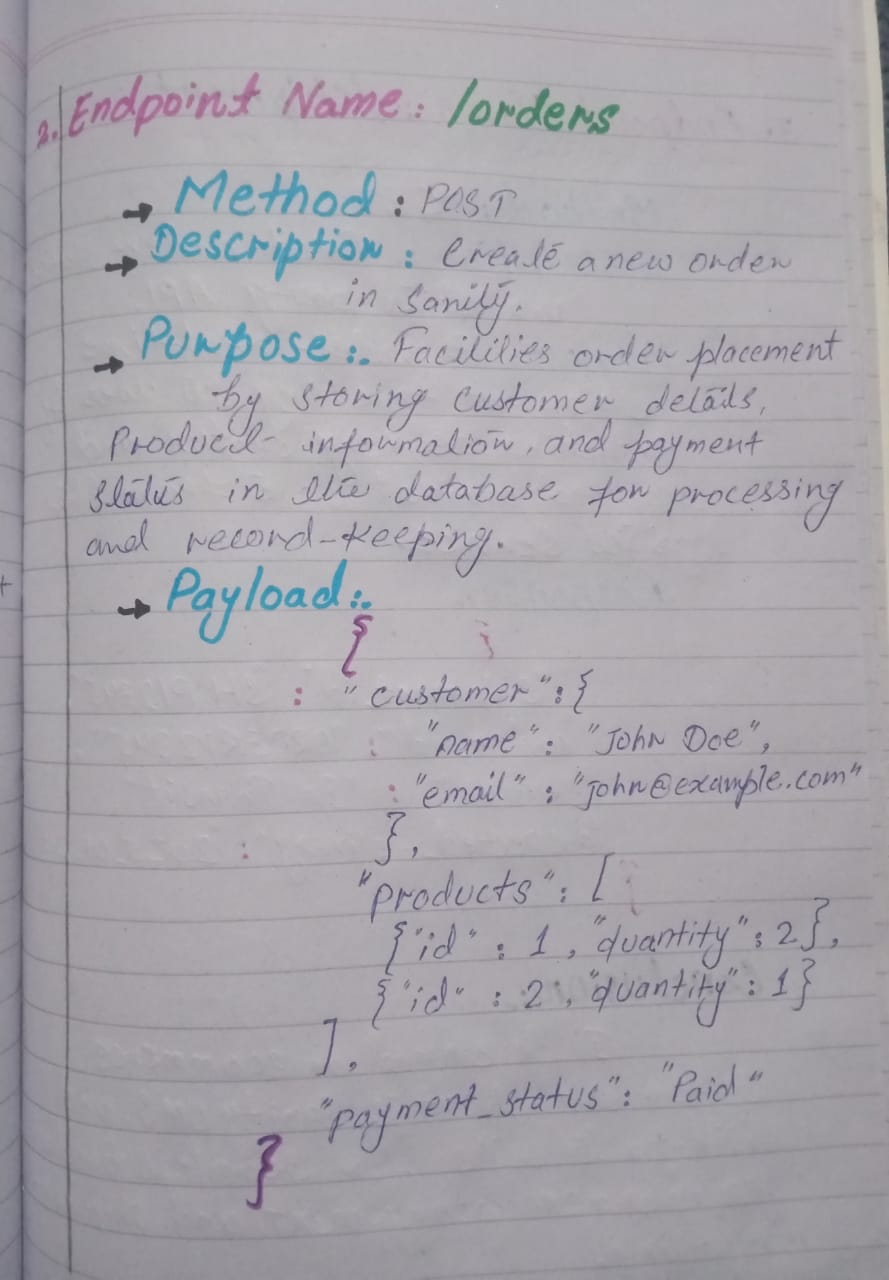 2. Endpoint Name: /orders
→ Method : POST
→ Description : Create a new order
in Sanity.
→ Purpose :. Facilities order placement
by storing customer details,
Product information, and payment
status in the database for processing
and record-keeping.
→ Payload :.
{
"customer":{
"name": "John Doe",
"email" : "john@example.com"
},
"Products": [
{"id" : 1, "quantity": 2},
{"id" : 2, "quantity": 1}
],
"payment_status": "Paid"
}